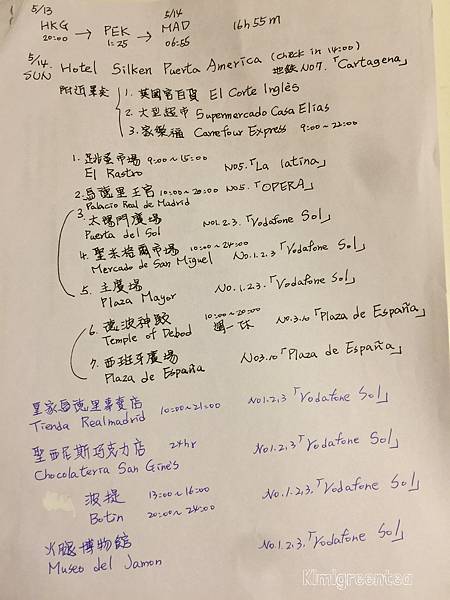 5/13 5/14
HKG → PEK → MAD 16h 55m
20:00 1:25 06:55
5/14 SUN Hotel Silken Puerta America (check in 14:00)
地鐵 No7.「Cartagena」
附近景点 1. 英國宮百貨 El Corte Inglès
2. 大型超市 Supermercado Casa Elias
3. 家樂福 Carrefour Express 9:00~22:00
1. 跳蚤市場 9:00~15:00 No5.「La latina」
El Rastro
2. 馬德里王宮 10:00~20:00 No5.「OPERA」
Palacio Real de Madrid
3. 太陽門廣場 No1.2.3.「Vodafone Sol」
Puerta del Sol
4. 聖米格爾市場 10:00~24:00 No.1.2.3「Vodafone Sol」
Mercado de San Miguel
5. 主廣場 No.1.2.3.「Vodafone Sol」
Plaza Mayor
6. 德波神殿 10:00~20:00 週一休 No.3.10「Plaza de España」
Temple of Debod
7. 西班牙廣場 No3.10「Plaza de España」
Plaza de España
皇家馬德里專賣店 10:00~21:00 No1.2.3「Vodafone Sol」
Tienda Realmadrid
聖西尼斯巧克力店 24hr No1.2.3「Vodafone Sol」
Chocolaterra San Gine's
波提 13:00~16:00 No.1.2.3.「Vodafone Sol」
Botin 20:00~24:00
火腿博物館 No.1.2.3.「Vodafone Sol」
Museo del Jamon
Kimigreentea